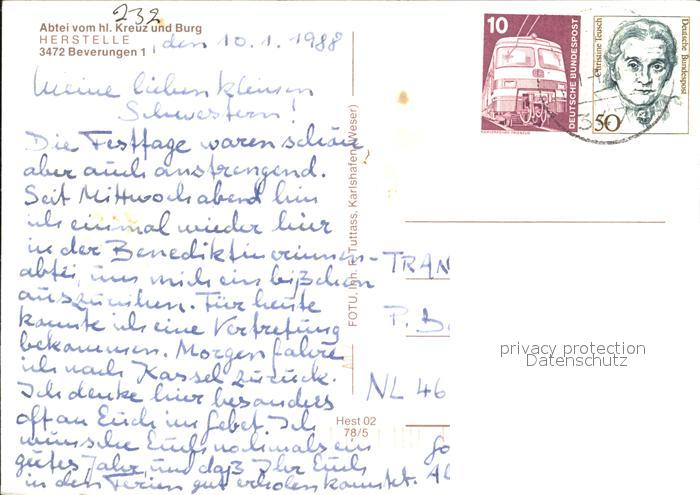 232
Abtei vom hl. Kreuz und Burg
HERSTELLE
3472 Beverungen 1
den 10.1.1988
Meine lieben kleinen
Schwestern!
Die Festtage waren schön
aber auch anstrengend.
Seit Mittwoch abend bin
ich einmal wieder hier
in der Benediktinerinnen-
abtei, um mich ein bißchen
auszuruhen. Für heute
konnte ich eine Vertretung
bekommen. Morgen fahre
ich nach Kassel zurück.
Ich denke hier besonders
oft an Euch im Gebet. Ich
wünsche Euch nochmals ein
gutes Jahr, und daß Ihr Euch
in den Ferien gut erholen konntet.
FOTU, Inh. F. Tuttass, Karlshafen (Weser)
Hest 02
78/5
10
DEUTSCHE BUNDESPOST
50
Christine Teusch
Deutsche Bundespost
TRAN
P. B
NL 46
privacy protection
Datenschutz